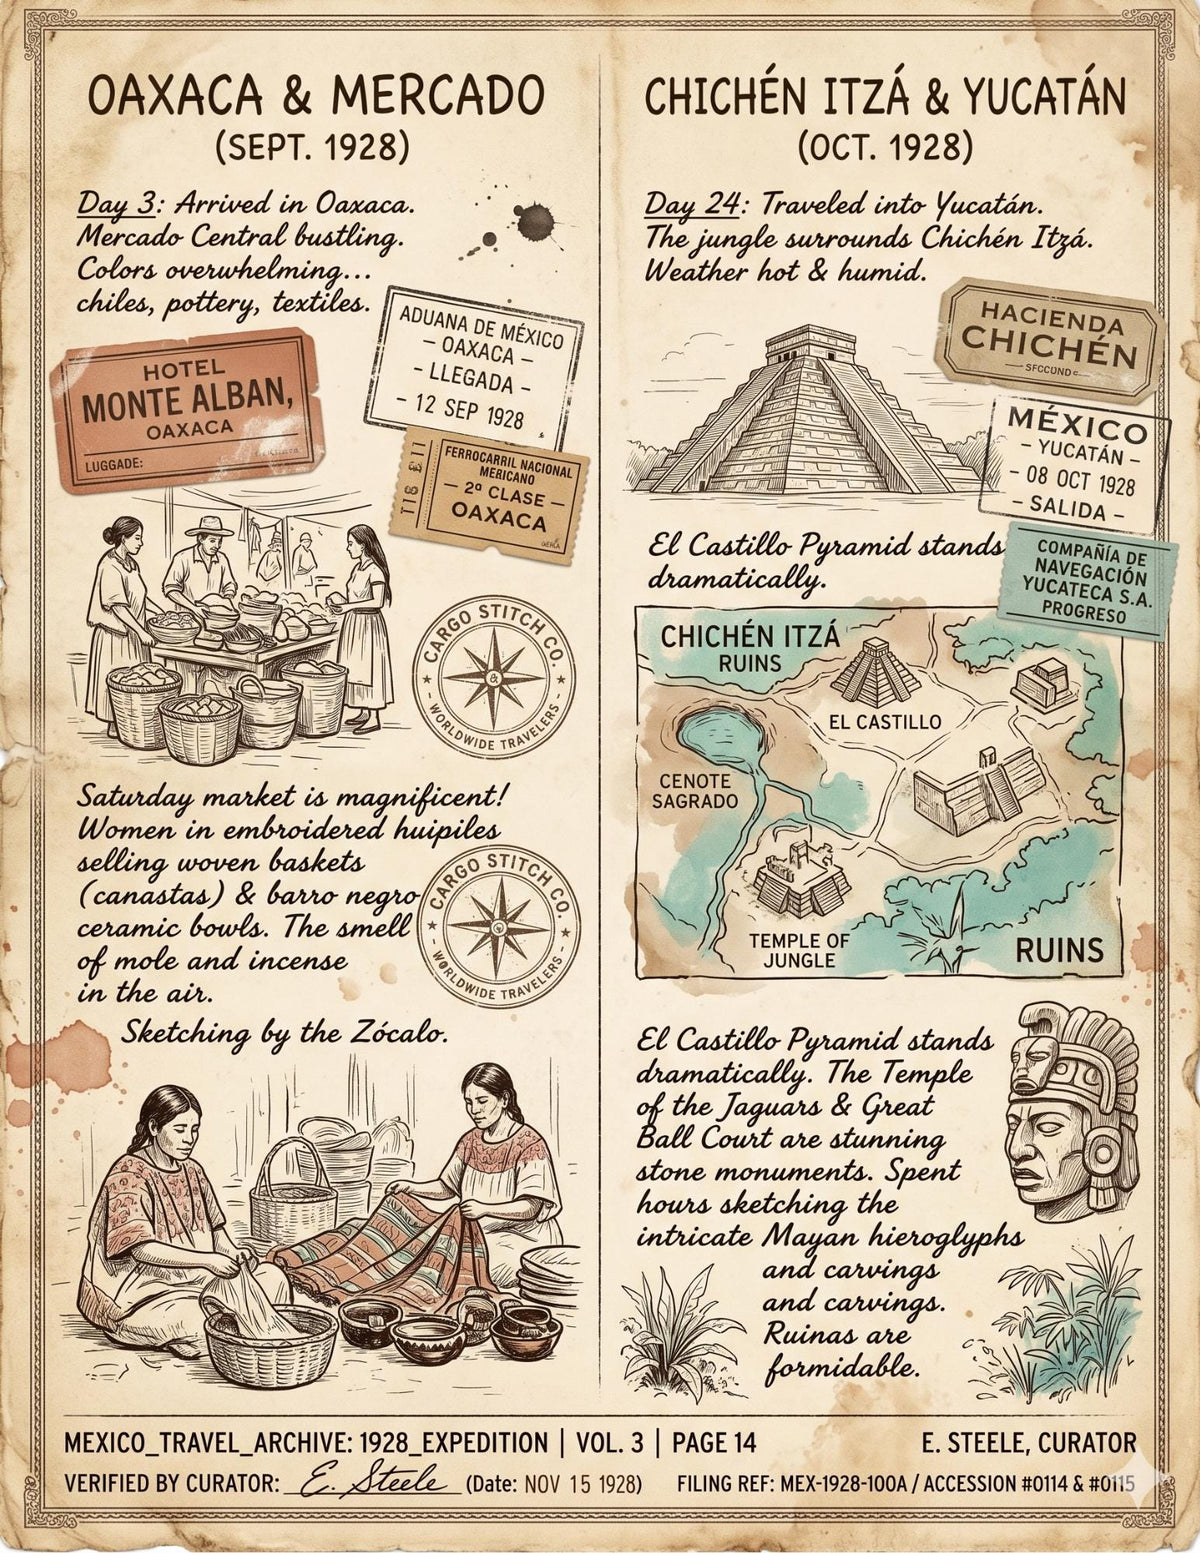 OAXACA & MERCADO
(SEPT. 1928)
Day 3: Arrived in Oaxaca.
Mercado Central bustling.
Colors overwhelming...
chiles, pottery, textiles.
ADUANA DE MÉXICO
– OAXACA –
- LLEGADA -
- 12 SEP 1928
HOTEL
MONTE ALBAN,
OAXACA
LUGGADE:
FERROCARRIL NACIONAL
MERICANO
— 2ª CLASE —
OAXACA
CARGO STITCH CO.
&
★ WORLDWIDE TRAVELERS ★
Saturday market is magnificent!
Women in embroidered huipiles
selling woven baskets
(canastas) & barro negro
ceramic bowls. The smell
of mole and incense
in the air.
CARGO STITCH CO.
★ WORLDWIDE TRAVELERS ★
Sketching by the Zócalo.
CHICHÉN ITZÁ & YUCATÁN
(OCT. 1928)
Day 24: Traveled into Yucatán.
The jungle surrounds Chichén Itzá.
Weather hot & humid.
HACIENDA
CHICHÉN
MÉXICO
– YUCATÁN –
- 08 OCT 1928
– SALIDA –
El Castillo Pyramid stands
dramatically.
COMPAÑÍA DE
NAVEGACIÓN
YUCATECA S.A.
PROGRESO
CHICHÉN ITZÁ
RUINS
EL CASTILLO
CENOTE
SAGRADO
TEMPLE OF
JUNGLE
RUINS
El Castillo Pyramid stands
dramatically. The Temple
of the Jaguars & Great
Ball Court are stunning
stone monuments. Spent
hours sketching the
intricate Mayan hieroglyphs
and carvings
and carvings.
Ruinas are
formidable.
MEXICO_TRAVEL_ARCHIVE: 1928_EXPEDITION | VOL. 3 | PAGE 14
E. STEELE, CURATOR
VERIFIED BY CURATOR: E. Steele (Date: NOV 15 1928)
FILING REF: MEX-1928-100A / ACCESSION #0114 & #0115